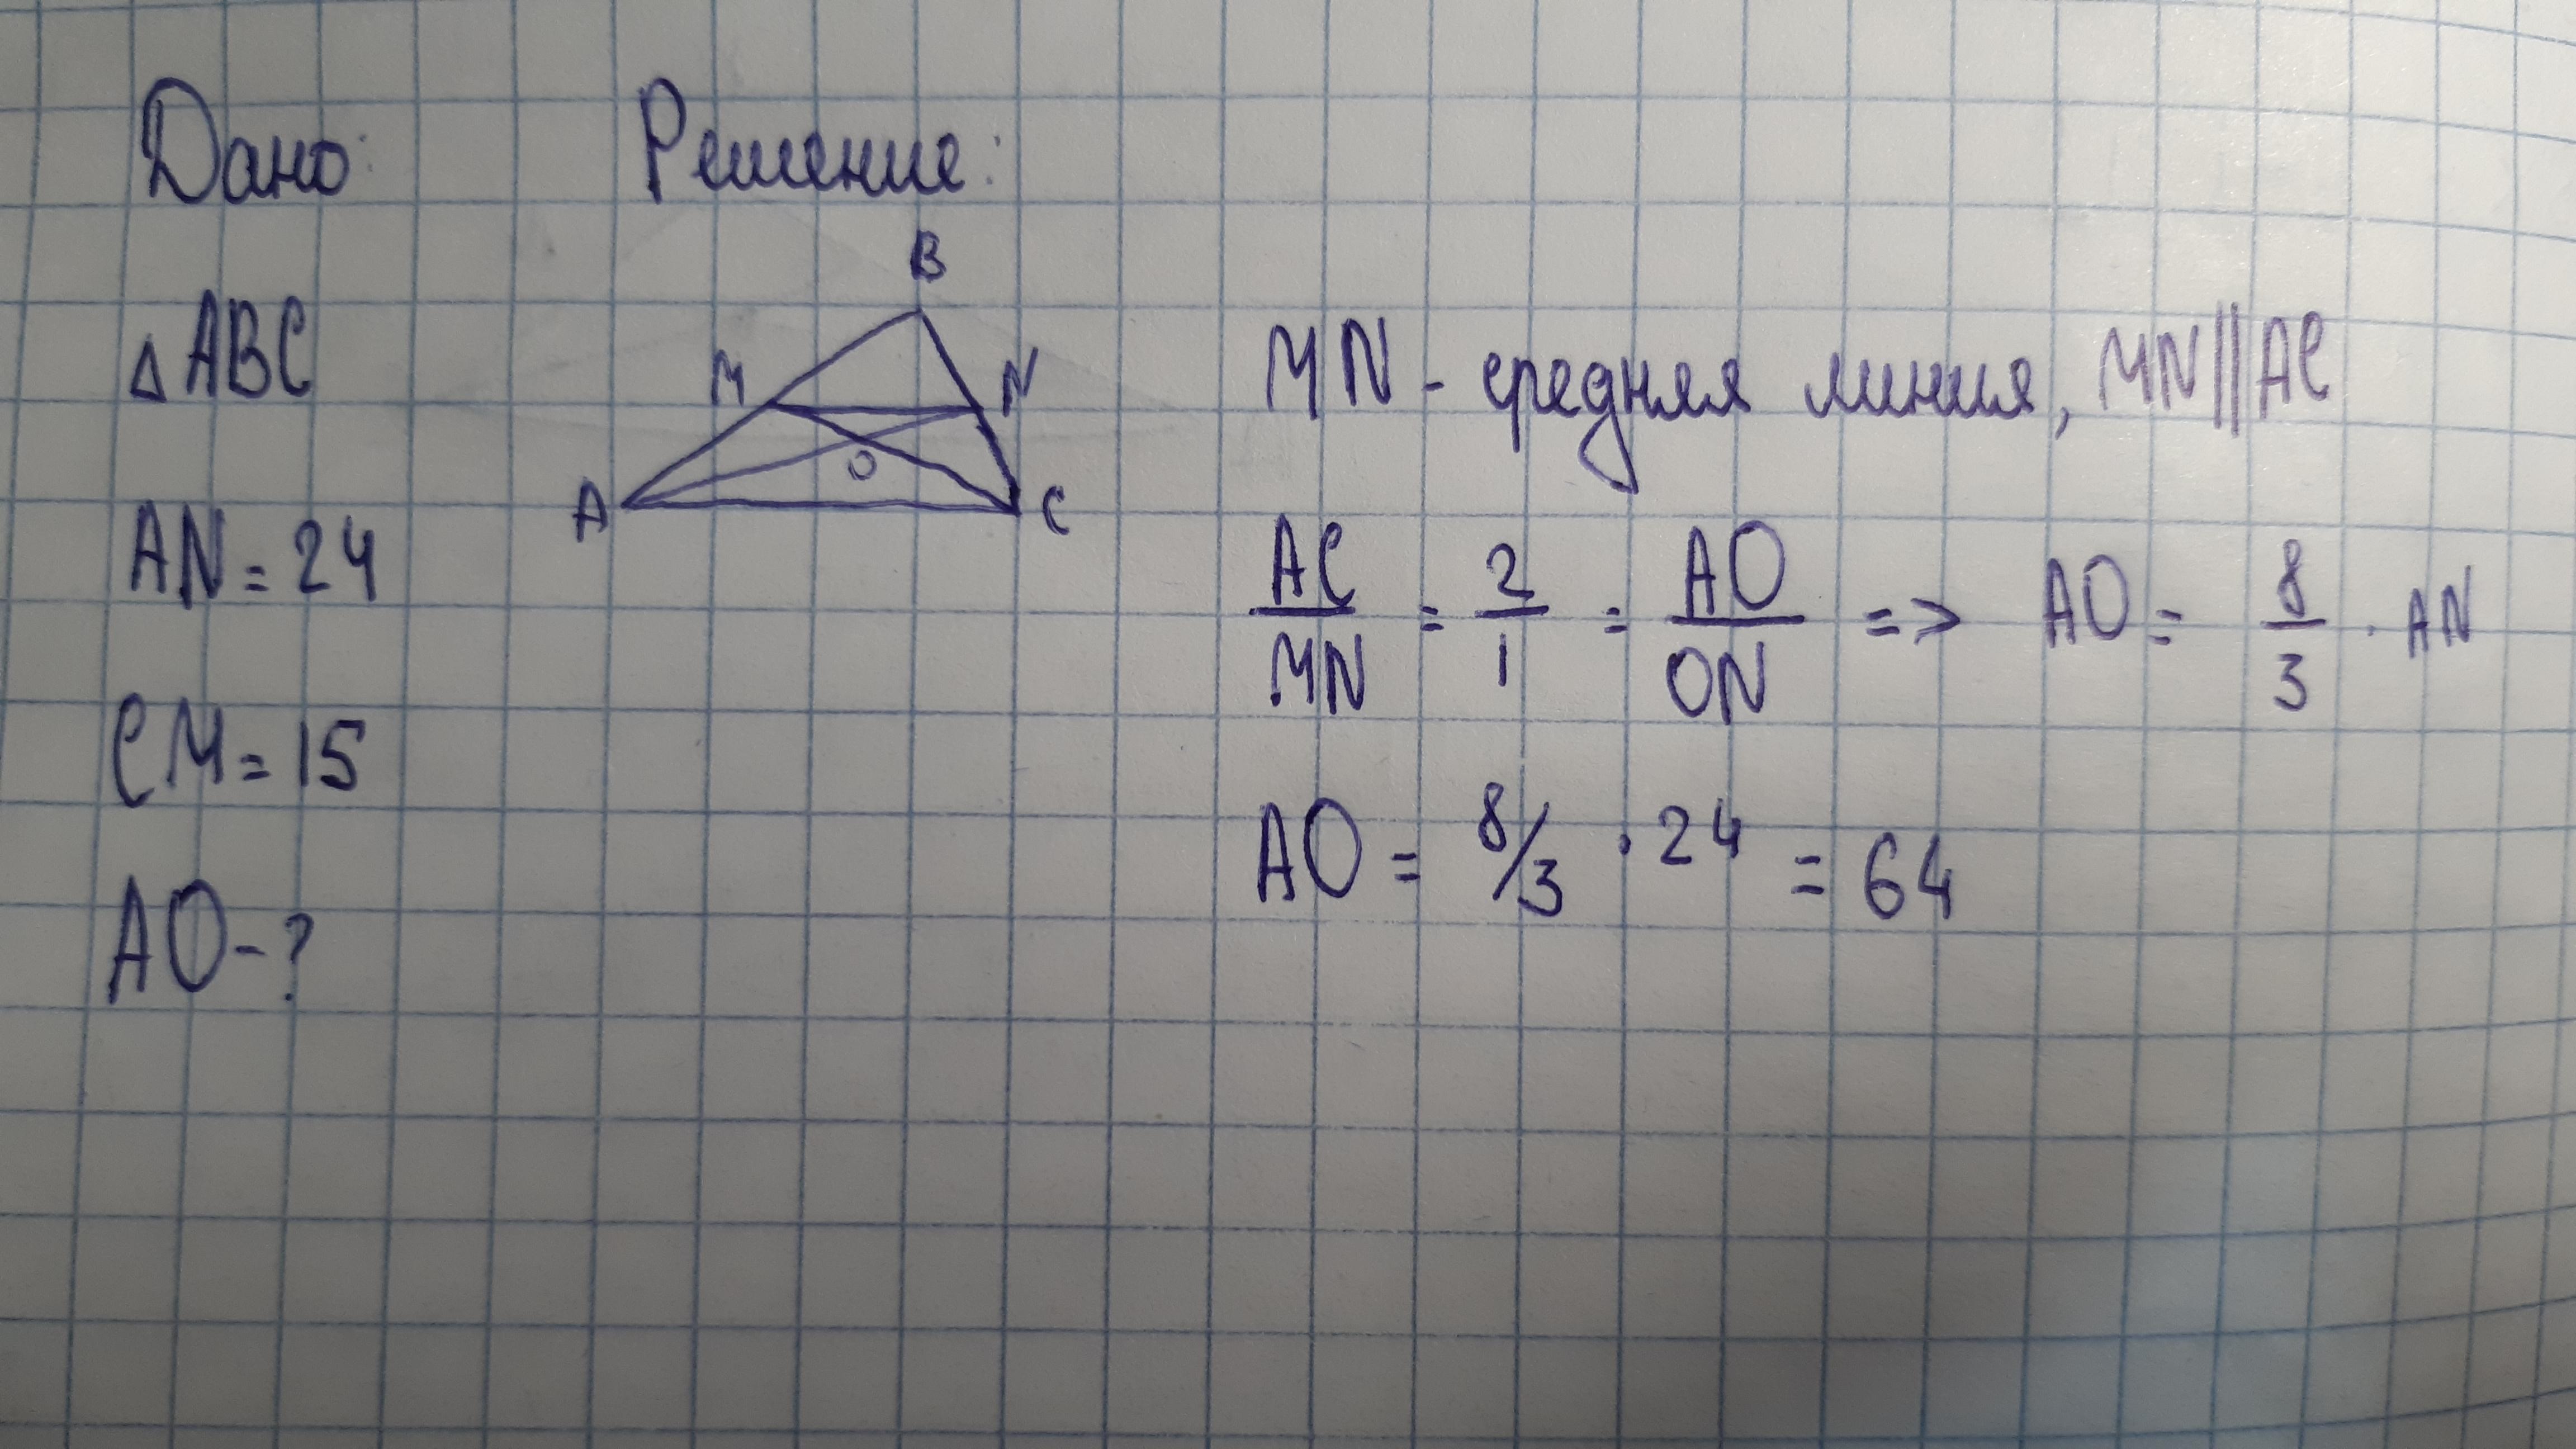 Дано:
△ABC
AN = 24
CM = 15
AO - ?
Решение:
B
M N
O
A C
MN - средняя линия, MN || AC
AC/MN = 2/1 = AO/ON => AO = 8/3 · AN
AO = 8/3 · 24 = 64